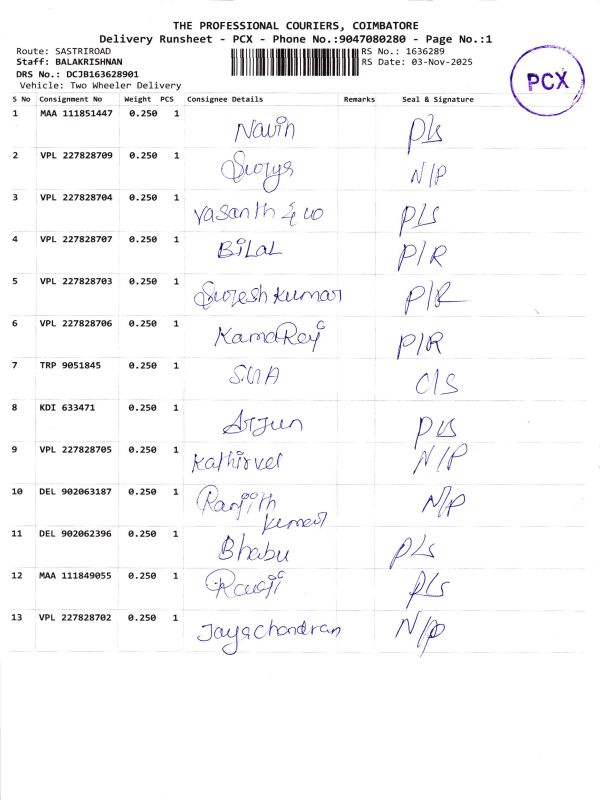 THE PROFESSIONAL COURIERS, COIMBATORE
Delivery Runsheet - PCX - Phone No.:9047080280 - Page No.:1
Route: SASTRIROAD RS No.: 1636289
Staff: BALAKRISHNAN RS Date: 03-Nov-2025
DRS No.: DCJB163628901
Vehicle: Two Wheeler Delivery
PCX
S No Consignment No Weight PCS Consignee Details Remarks Seal & Signature
1 MAA 111851447 0.250 1 Navin P/s
2 VPL 227828709 0.250 1 Surya N/P
3 VPL 227828704 0.250 1 Vasanth & co P/s
4 VPL 227828707 0.250 1 BiLAL P/R
5 VPL 227828703 0.250 1 Sureshkumar P/R
6 VPL 227828706 0.250 1 KamaRaj P/R
7 TRP 9051845 0.250 1 C/S
8 KDI 633471 0.250 1 Arjun P/s
9 VPL 227828705 0.250 1 Kathirvel N/P
10 DEL 902063187 0.250 1 Ranjith N/P
kumar
11 DEL 902062396 0.250 1 Bhabu P/s
12 MAA 111849055 0.250 1 P/s
13 VPL 227828702 0.250 1 Jayachandran N/P